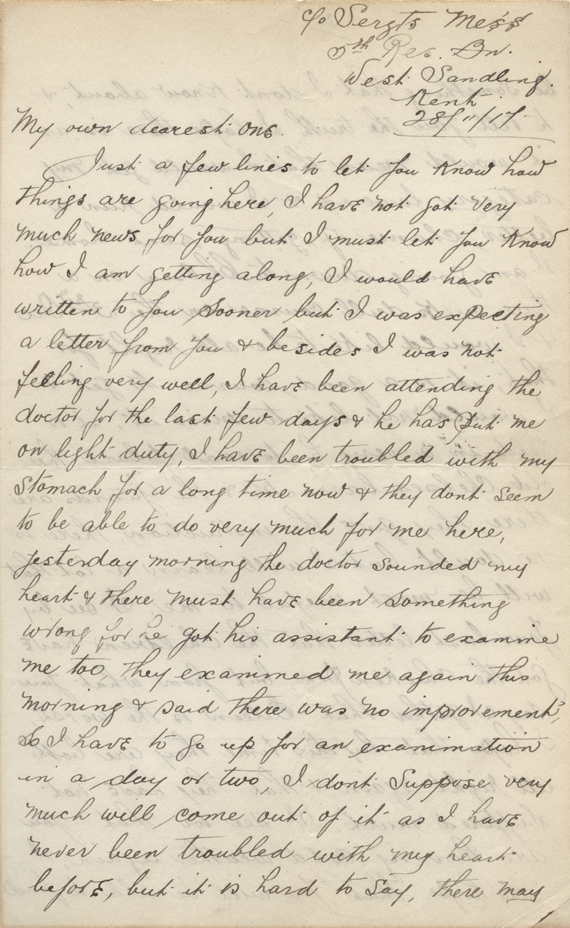 c/o Sergts Mess
5th Res. Bn.
West Sandling.
Kent
28/11/17.
My own dearest one.
Just a few lines to let you know how
things are going here, I have not got very
much news for you but I must let you know
how I am getting along, I would have
written to you sooner but I was expecting
a letter from you & besides I was not
feeling very well, I have been attending the
doctor for the last few days & he has put me
on light duty, I have been troubled with my
stomach for a long time now & they dont seem
to be able to do very much for me here,
yesterday morning the doctor sounded my
heart & there must have been something
wrong for he got his assistant to examine
me too, they examined me again this
morning & said there was no improvement,
So I have to go up for an exanimation
in a day or two, I dont suppose very
much will come out of it as I have
never been troubled with my heart
before, but it is hard to say, there may